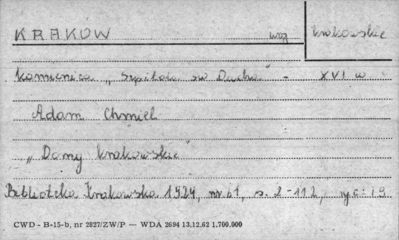 KRAKÓW woj. krakowskie
kamienica „Szpitala św Ducha" - XVI w
Adam Chmiel
„Domy krakowskie"
Biblioteka Krakowska 1924, nr 61, s. 2-112, ryc: 19
CWD - B-15-b, nr 2827/ZW/P — WDA 2694 13.12.62 1.700.000